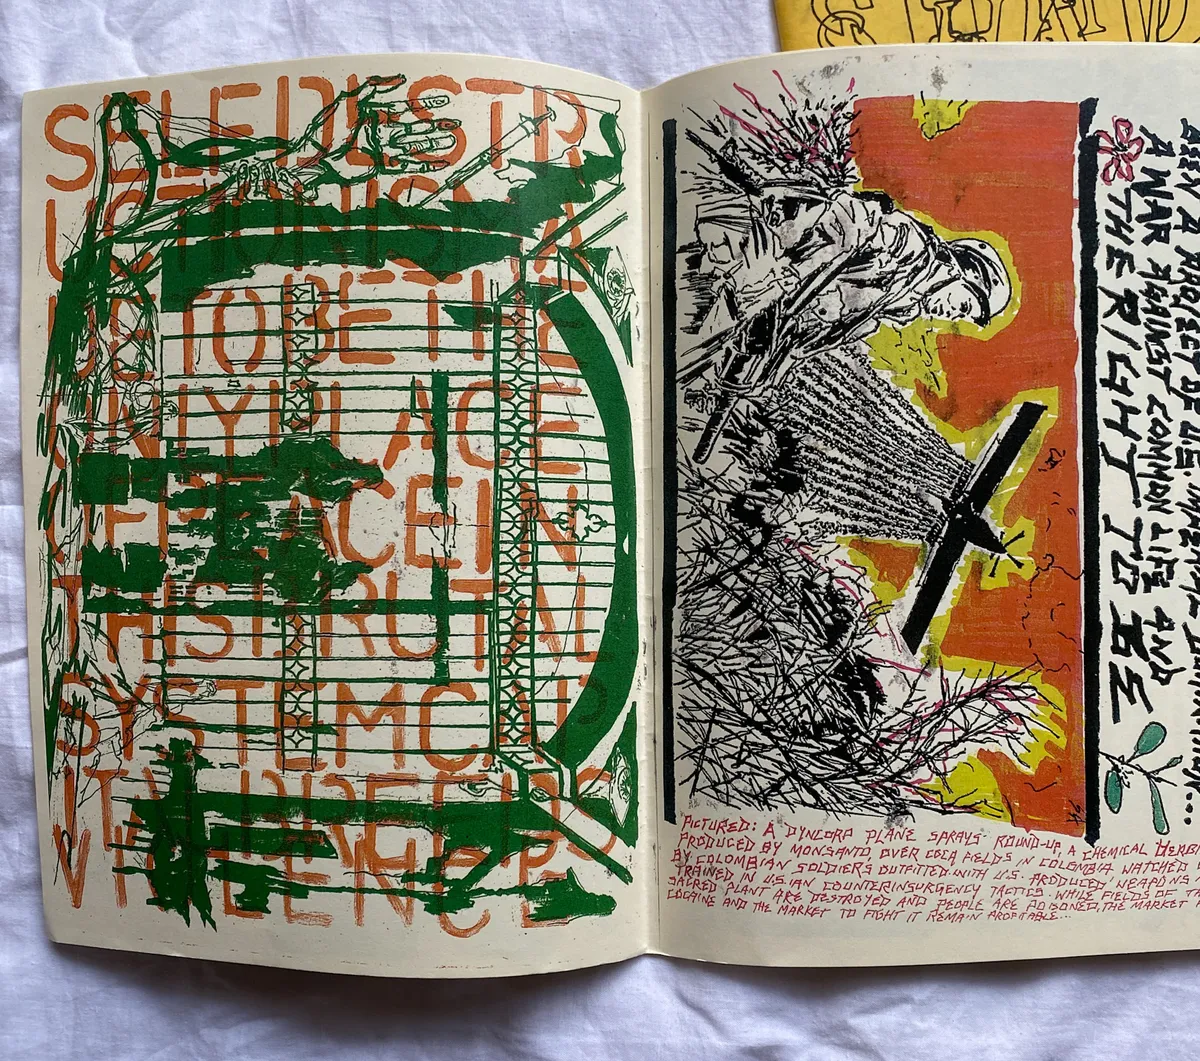 SELF DESTR
UCTION IS MA
DE TO BE THE
ONLY PLACE
OF PEACE IN
THIS BRUTAL
SYSTEM
BREEDS
VIOLENCE
BEEN A
A WAR AGAINST COMMON LIFE AND
THE RIGHT TO BE
PICTURED: A DYNCORP PLANE SPRAYS ROUND-UP, A CHEMICAL
PRODUCED BY MONSANTO, OVER COCA FIELDS IN COLOMBIA WATCHED
BY COLOMBIAN SOLDIERS OUTFITTED WITH U.S. PRODUCED WEAPONS
TRAINED IN U.S.IAN COUNTERINSURGENCY TACTICS WHILE FIELDS OF
SACRED PLANT ARE DESTROYED AND PEOPLE ARE POISONED, THE MARKET
COCAINE AND THE MARKET TO FIGHT IT REMAIN PROFITABLE...